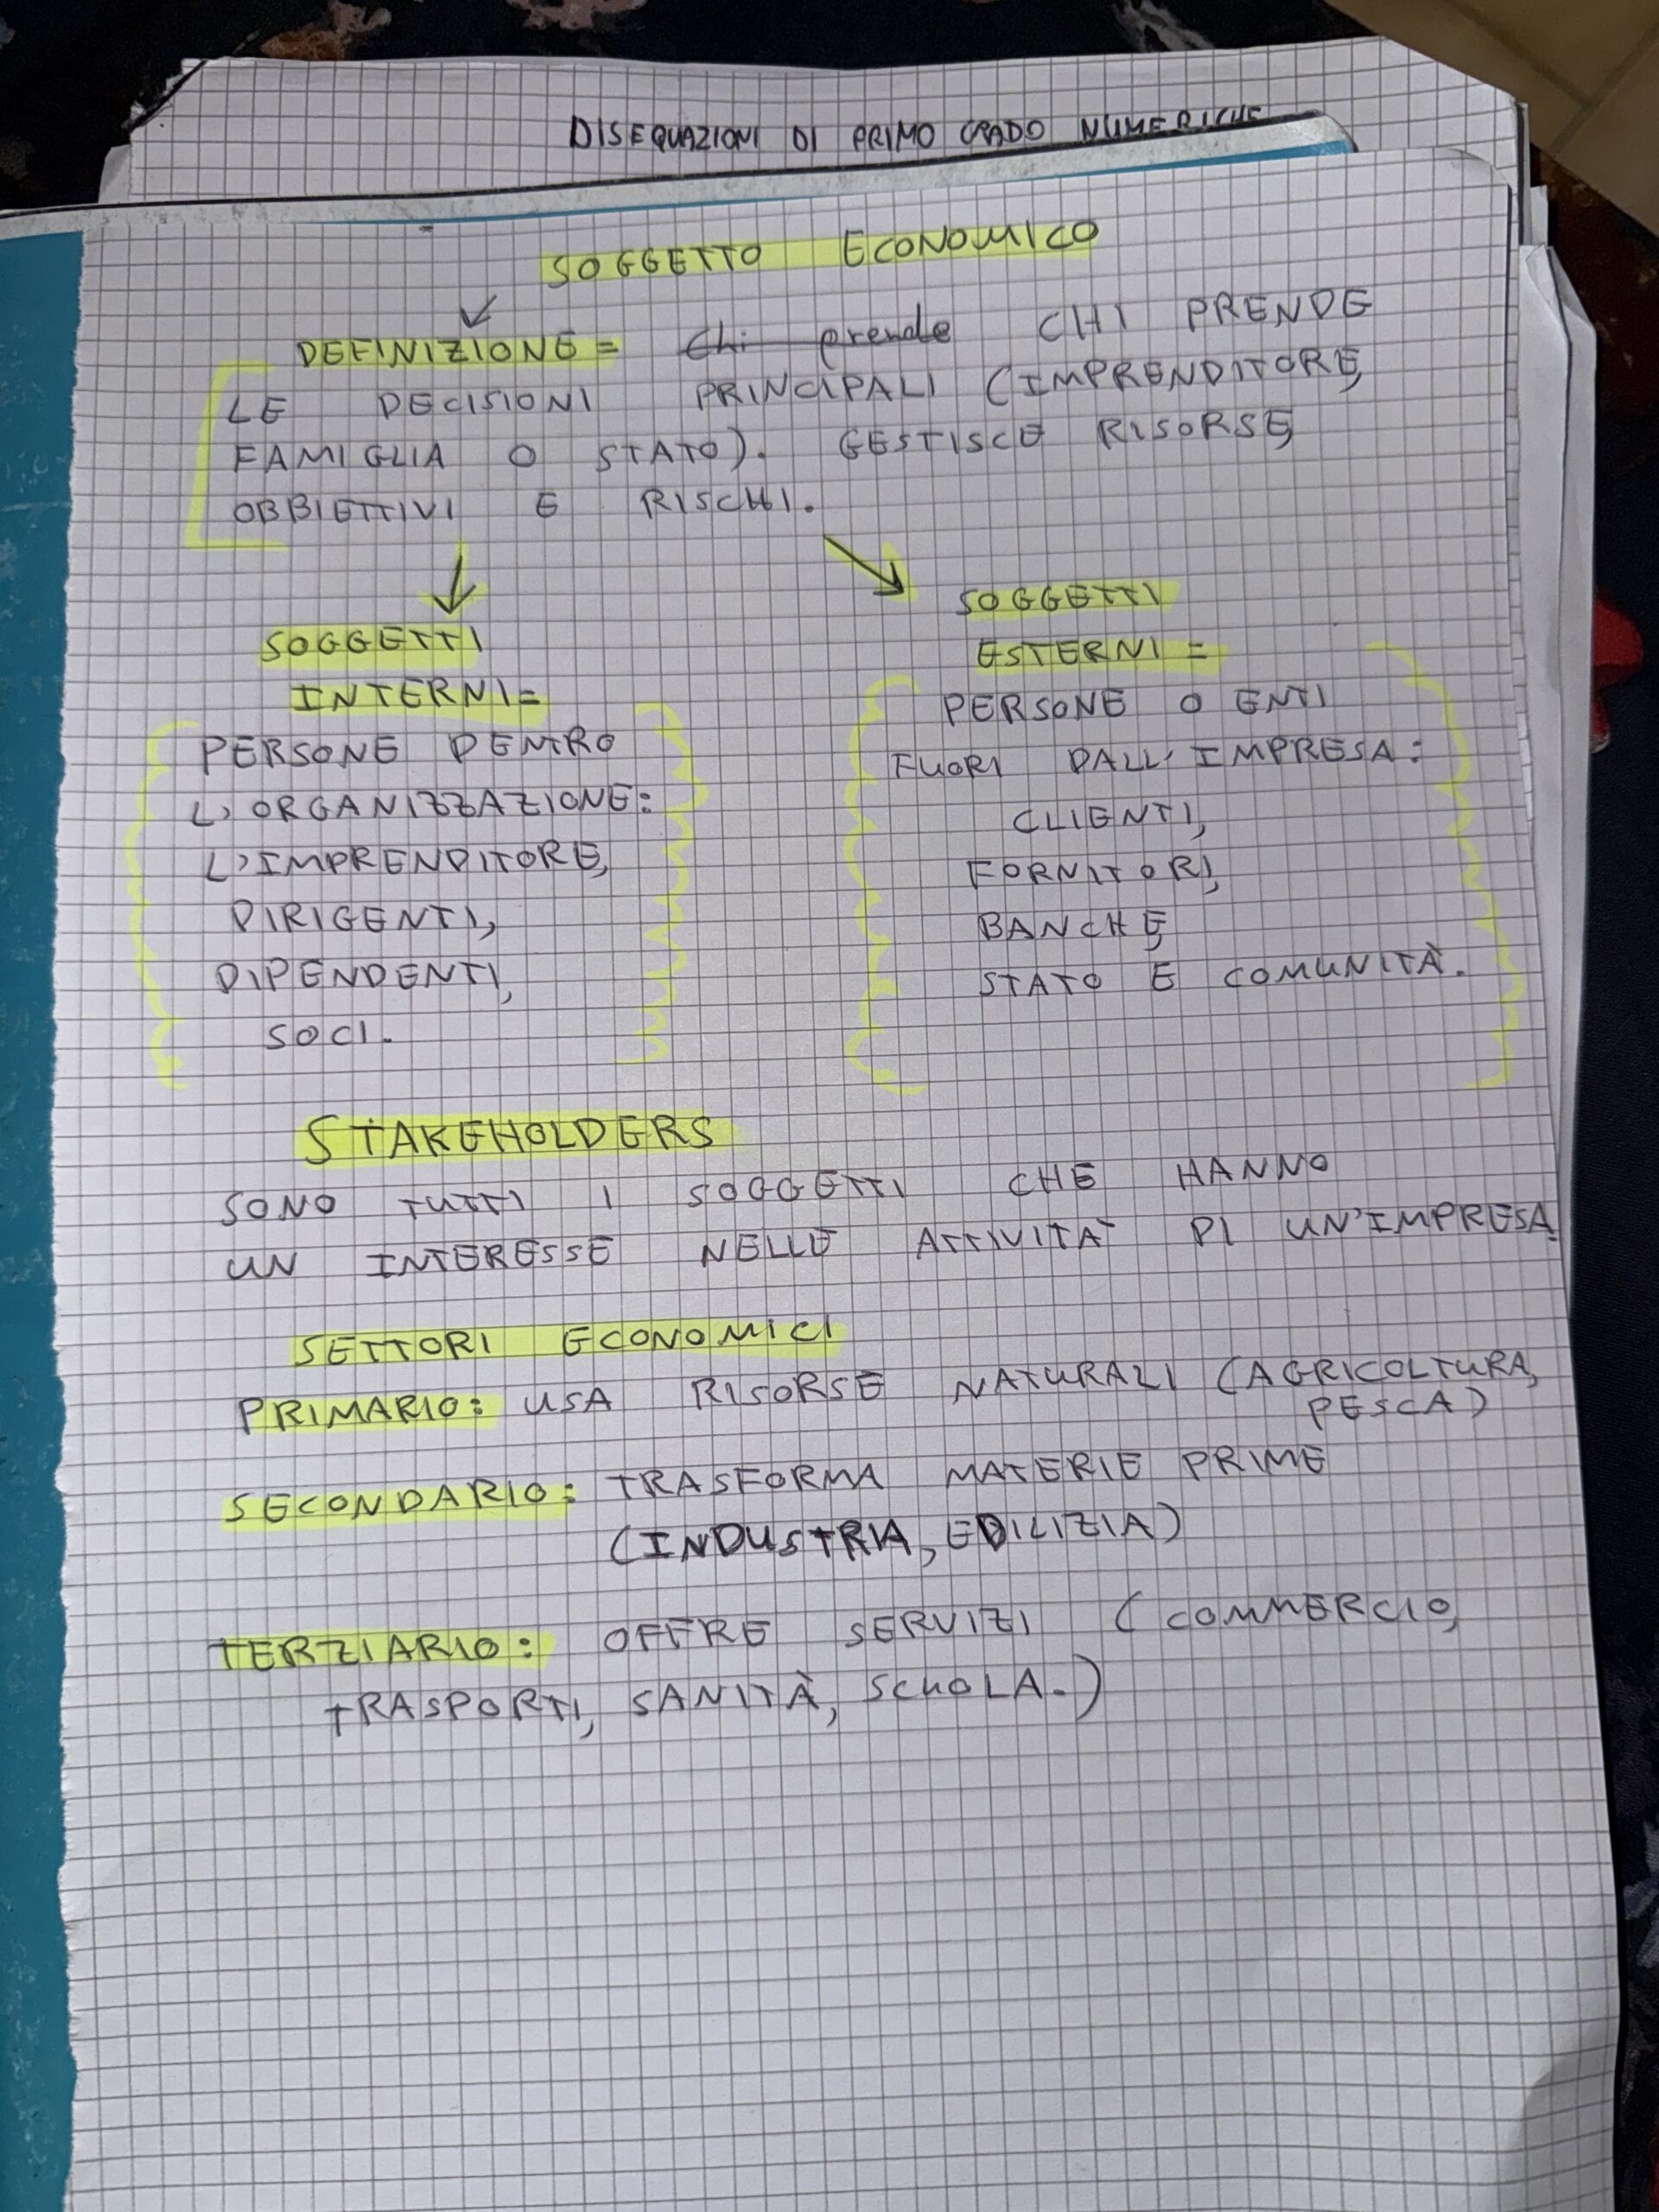 DISEQUAZIONI DI PRIMO GRADO NUMERICHE
SOGGETTO ECONOMICO
DEFINIZIONE = Chi prende CHI PRENDE
LE DECISIONI PRINCIPALI (IMPRENDITORE,
FAMIGLIA O STATO). GESTISCE RISORSE,
OBBIETTIVI E RISCHI.
SOGGETTI
INTERNI=
PERSONE DENTRO
L'ORGANIZZAZIONE:
L'IMPRENDITORE,
DIRIGENTI,
DIPENDENTI,
SOCI.
SOGGETTI
ESTERNI =
PERSONE O ENTI
FUORI DALL'IMPRESA:
CLIENTI,
FORNITORI,
BANCHE,
STATO E COMUNITÀ.
STAKEHOLDERS
SONO TUTTI I SOGGETTI CHE HANNO
UN INTERESSE NELLE ATTIVITÀ DI UN'IMPRESA.
SETTORI ECONOMICI
PRIMARIO: USA RISORSE NATURALI (AGRICOLTURA,
PESCA)
SECONDARIO: TRASFORMA MATERIE PRIME
(INDUSTRIA, EDILIZIA)
TERZIARIO: OFFRE SERVIZI (COMMERCIO,
TRASPORTI, SANITÀ, SCUOLA.)